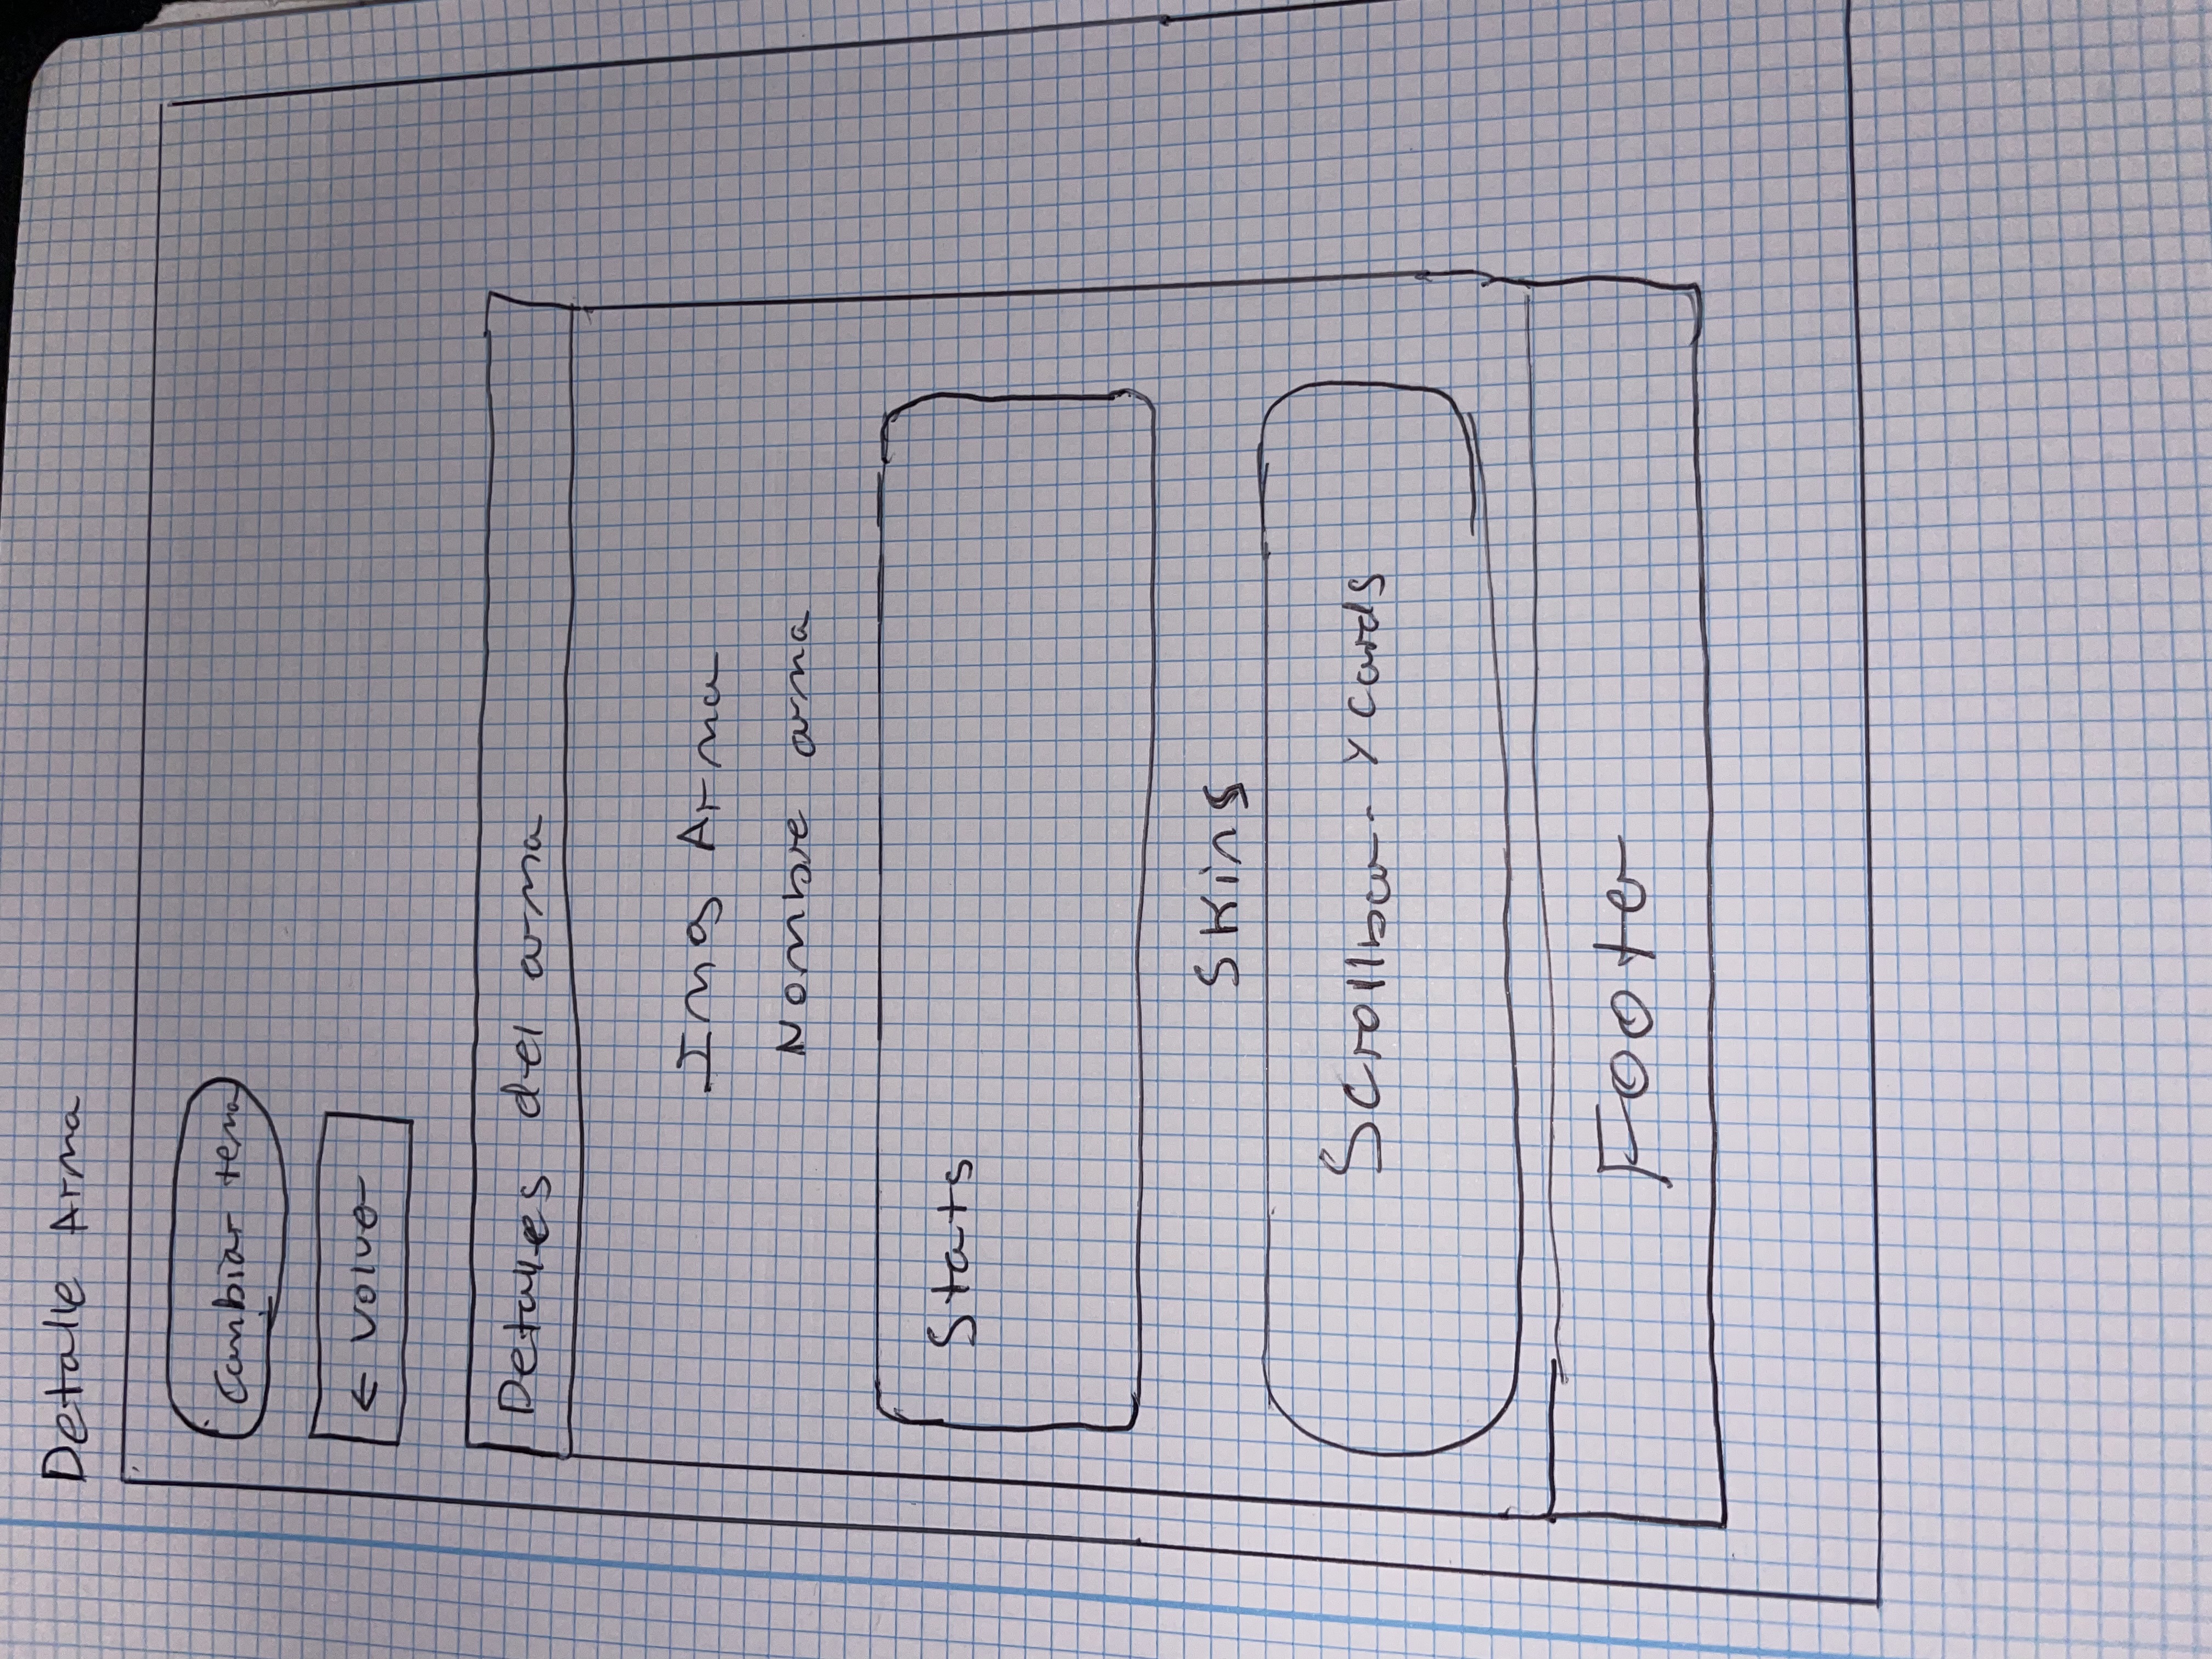 Detalle Arma
Cambiar tema
← Volver
Detalles del arma
Img Arma
Nombre arma
Stats
Skins
Scrollbar y cards
Footer